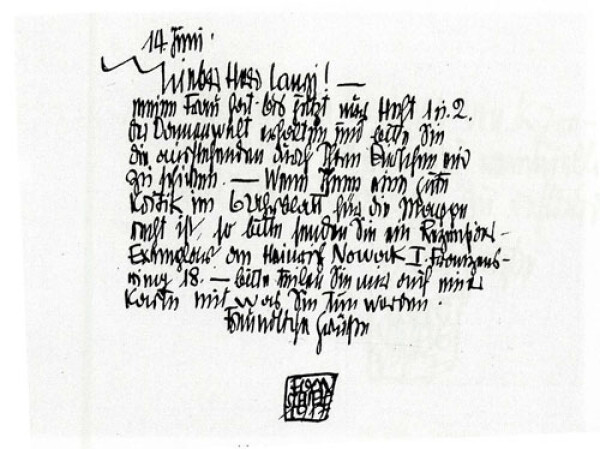 14. Juni.
Lieber Herr Lanyi! —
meine Frau hat bis jetzt nur Heft 1 u. 2.
der Damenwelt erhalten und bitte Sie
die ausstehenden durch Ihren Burschen mir
zu senden. — Wenn Ihnen eine gute
Kritik im Extrablatt für die Mappe
recht ist, so bitte senden Sie ein Rezensions-
Exemplar an Heinrich Nowak I. Franzens-
ring 18. — bitte teilen Sie mir auf einer
Karte mit was Sie tun werden.
Freundliche Grüße
EGON
SCHIELE
1917